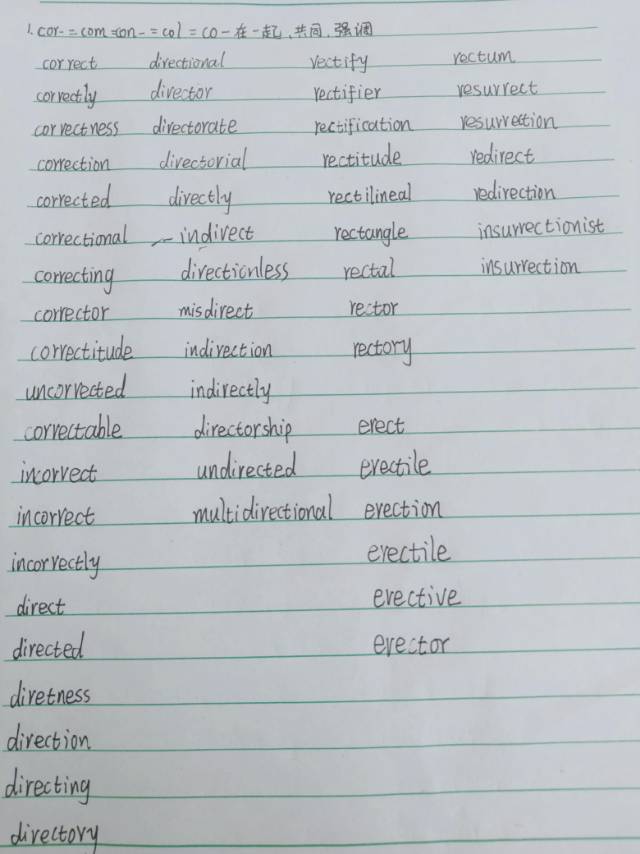 1. cor- = com = con- = col = co- 在一起、共同、强调
correct directional rectify rectum
correctly director rectifier resurrect
correctness directorate rectification resurrection
correction directorial rectitude redirect
corrected directly rectilineal redirection
correctional indirect rectangle insurrectionist
correcting directionless rectal insurrection
corrector misdirect rector
correctitude indirection rectory
uncorrected indirectly
correctable directorship erect
incorrect undirected erectile
incorrect multidirectional erection
incorrectly erectile
direct erective
directed erector
diretness
direction
directing
directory